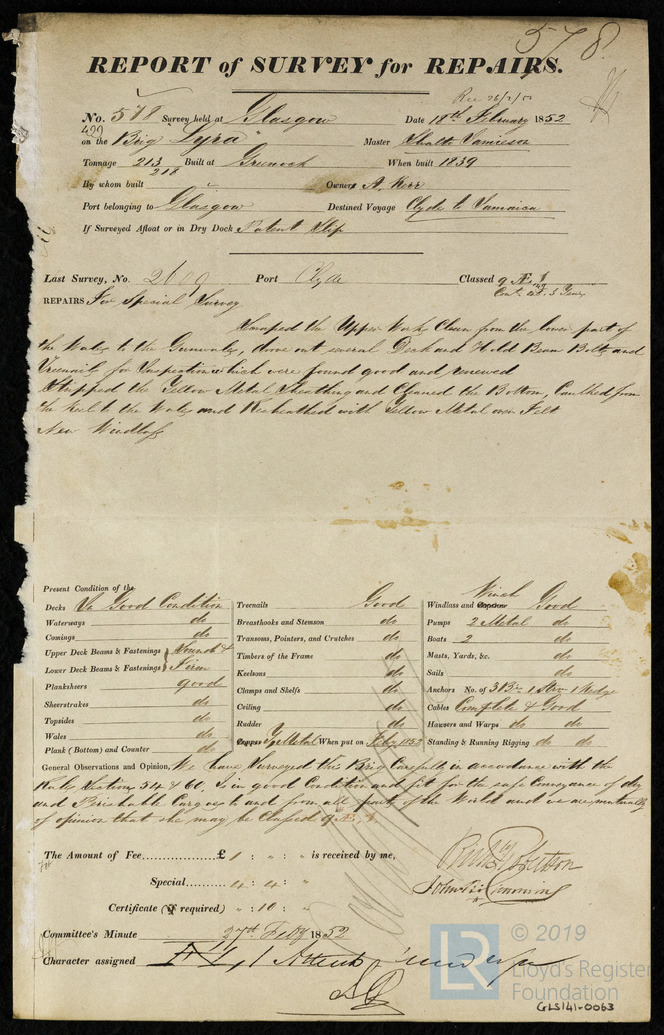 578.
REPORT of SURVEY for REPAIRS.
No. 578 Survey held at Glasgow Date 18th February 1852
on the Brig "Lyra" Master Jamieson
Tonnage 213 Built at Greenock When built 1839
218
By whom built Owners A. Kerr
Port belonging to Glasgow Destined Voyage Clyde to Jamaica
If Surveyed Afloat or in Dry Dock Patent Slip
Last Survey, No. Port Clyde Classed
REPAIRS For Special Survey
Scraped the Upper Works Clean from the lower part of
the Wales to the Gunwales, drove out several Deck and Hold Beam Bolts and
Treenails for Inspection which were found good and renewed
Stripped the Yellow Metal Sheathing and Cleaned the Bottom, Caulked from
the Keel to the Wales and Resheathed with Yellow Metal over Felt
New Windlass
Present Condition of the
Decks In Good Condition
Waterways do
Comings do
Upper Deck Beams & Fastenings } Sound &
Lower Deck Beams & Fastenings } Firm
Planksheers good
Sheerstrakes do
Topsides do
Wales do
Plank (Bottom) and Counter do
Treenails Good
Breasthooks and Stemson do
Transoms, Pointers, and Crutches do
Timbers of the Frame do
Keelsons do
Clamps and Shelfs do
Ceiling do
Rudder do
Copper Y Metal When put on Feby 1852
Winch
Windlass and Capstan Good
Pumps 2 Metal do
Boats 2 do
Masts, Yards, &c. do
Sails do
Anchors No. of 3 Br 1 Strm 1 Kedge
Cables Complete & Good
Hawsers and Warps do do
Standing & Running Rigging do do
General Observations and Opinion, We have Surveyed this Brig Carefully in accordance with the
Rules Sections 54 & 60, Is in good Condition and fit for the safe Conveyance of dry
and Perishable Cargoes to and from all parts of the World and we are mutually
of opinion that she may be Classed
The Amount of Fee £ 1 : " : " is received by me,
Special 4 : 4 : "
Certificate (if required) " : 10 : "
Committee's Minute 27th Feby 1852
Character assigned
LR © 2019
Lloyd's Register
Foundation
GLS141-0063